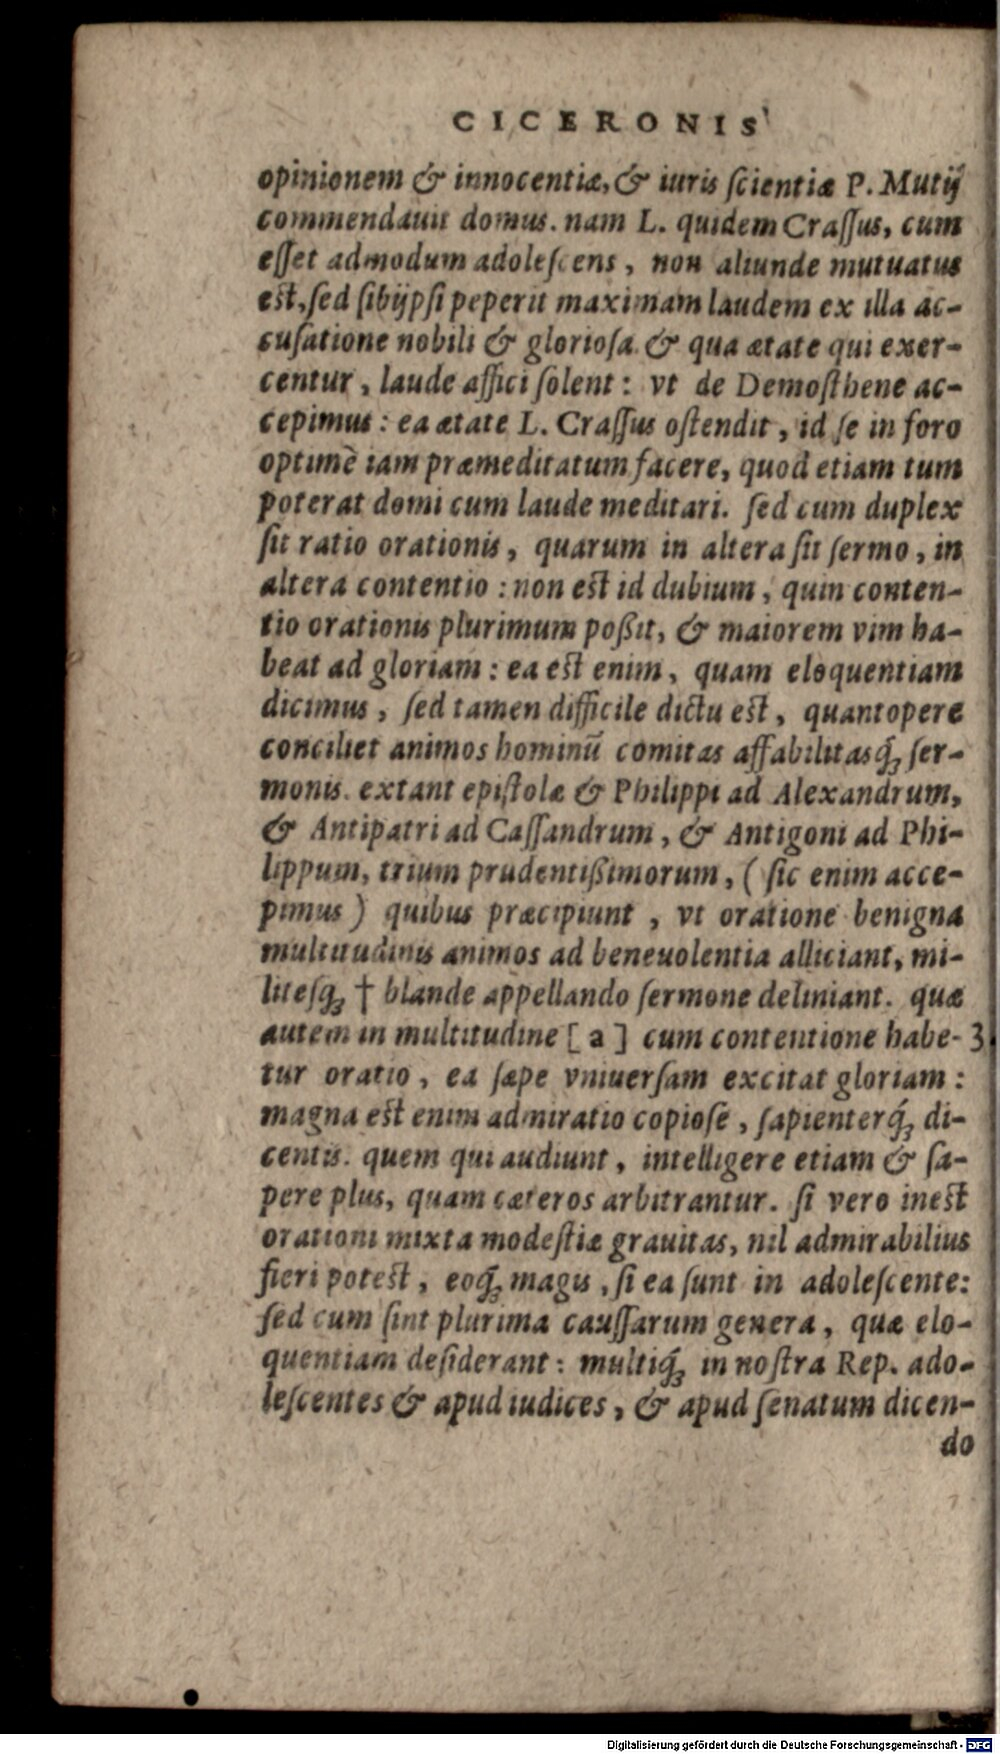 CICERONIS
opinionem & innocentiæ, & iuris ſcientiæ P. Mutij
commendauit domus. nam L. quidem Craſſus, cum
eſſet admodum adoleſcens, non aliunde mutuatus
eſt, ſed ſibijpſi peperit maximam laudem ex illa ac-
cuſatione nobili & glorioſa. & qua ætate qui exer-
centur, laude affici ſolent: vt de Demoſthene ac-
cepimus: ea ætate L. Craſſus oſtendit, id ſe in foro
optimè iam præmeditatum facere, quod etiam tum
poterat domi cum laude meditari. ſed cum duplex
ſit ratio orationis, quarum in altera ſit ſermo, in
altera contentio: non eſt id dubium, quin conten-
tio orationis plurimum poßit, & maiorem vim ha-
beat ad gloriam: ea eſt enim, quam eloquentiam
dicimus, ſed tamen difficile dictu eſt, quantopere
conciliet animos hominū comitas affabilitasq́; ſer-
monis. extant epiſtolæ & Philippi ad Alexandrum,
& Antipatri ad Caſſandrum, & Antigoni ad Phi-
lippum, trium prudentißimorum, (ſic enim acce-
pimus) quibus præcipiunt, vt oratione benigna
multitudinis animos ad beneuolentia alliciant, mi-
liteſq́; † blande appellando ſermone deliniant. quæ
autem in multitudine [a] cum contentione habe- 3.
tur oratio, ea ſæpe vniuerſam excitat gloriam:
magna eſt enim admiratio copioſe, ſapienterq́; di-
centis. quem qui audiunt, intelligere etiam & ſa-
pere plus, quam cæteros arbitrantur. ſi vero ineſt
orationi mixta modeſtiæ grauitas, nil admirabilius
fieri poteſt, eoq́; magis, ſi ea ſunt in adoleſcente:
ſed cum ſint plurima cauſſarum genera, quæ elo-
quentiam deſiderant: multiq́; in noſtra Rep. ado-
leſcentes & apud iudices, & apud ſenatum dicen-
do
Digitalisierung gefördert durch die Deutsche Forschungsgemeinschaft - DFG